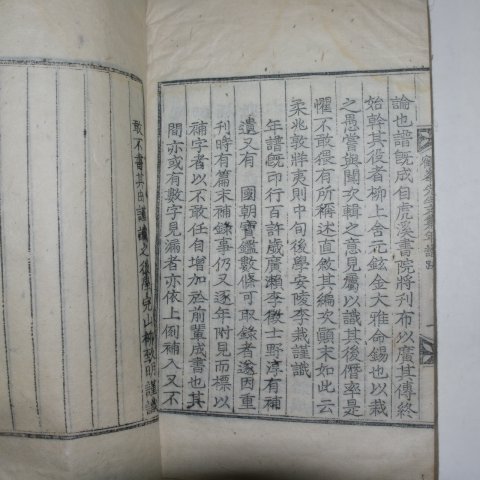 論也譜旣成自虎溪書院將刊布以廣其傳終
始幹其後者柳上舍元鉉金大雅命錫也以栽
之愚嘗與聞次輯之意見屬以識其後僭率是
懼不敢猥有所稱述直敘其編次顚末如此云
柔兆敦牂夷則中旬後學安陵李栽謹識
年譜旣印行百許歲廣瀨李徵士野淳有補
遺又有 國朝寶鑑數條可取錄者遂因重
刊時有篇末補錄事仍又逐年附見而標以
補字者以不敢任自增加於前輩成書也其
間亦或有數字見漏者亦依上例補入又不
敢不書其由謹識之後學完山柳致明謹識